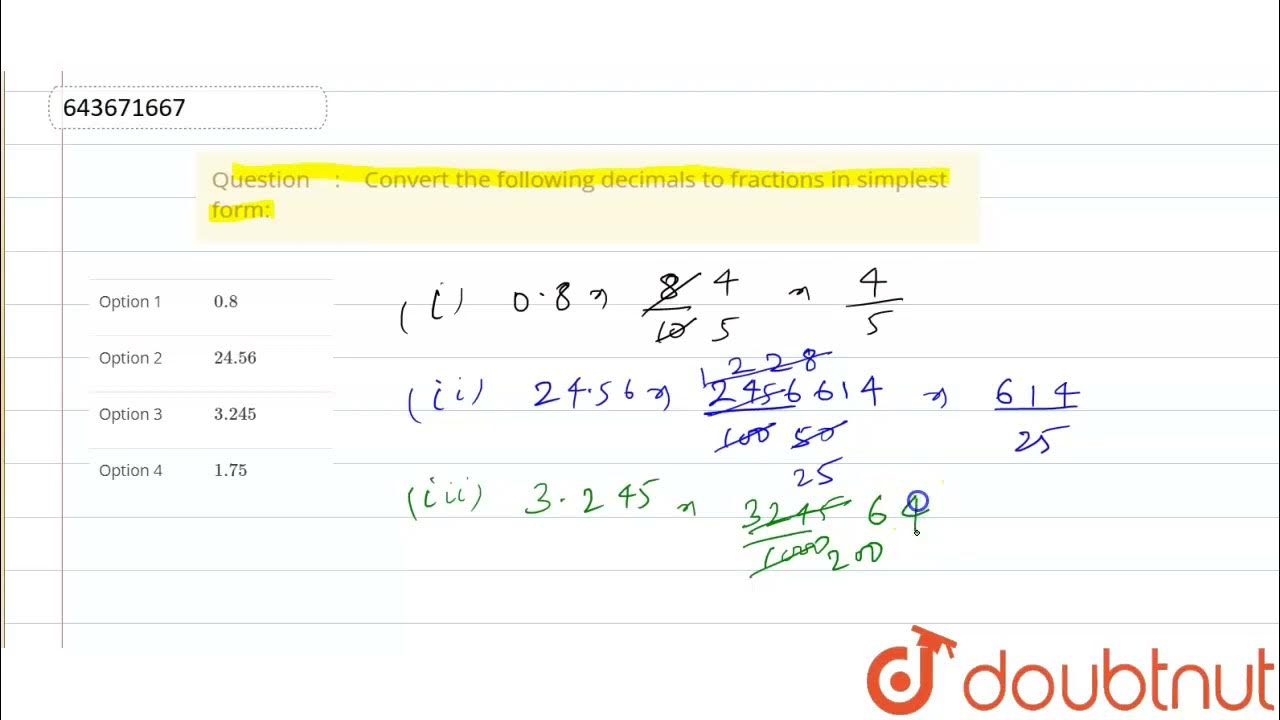 643671667
Question : Convert the following decimals to fractions in simplest
form:
Option 1 0.8
Option 2 24.56
Option 3 3.245
Option 4 1.75
(i) 0.8 ⇒ 8/10 4/5 ⇒ 4/5
(ii) 24.56 ⇒ 2456/100 1228/50 614/25 ⇒ 614/25
(iii) 3.245 ⇒ 3245/1000 64/200
doubtnut